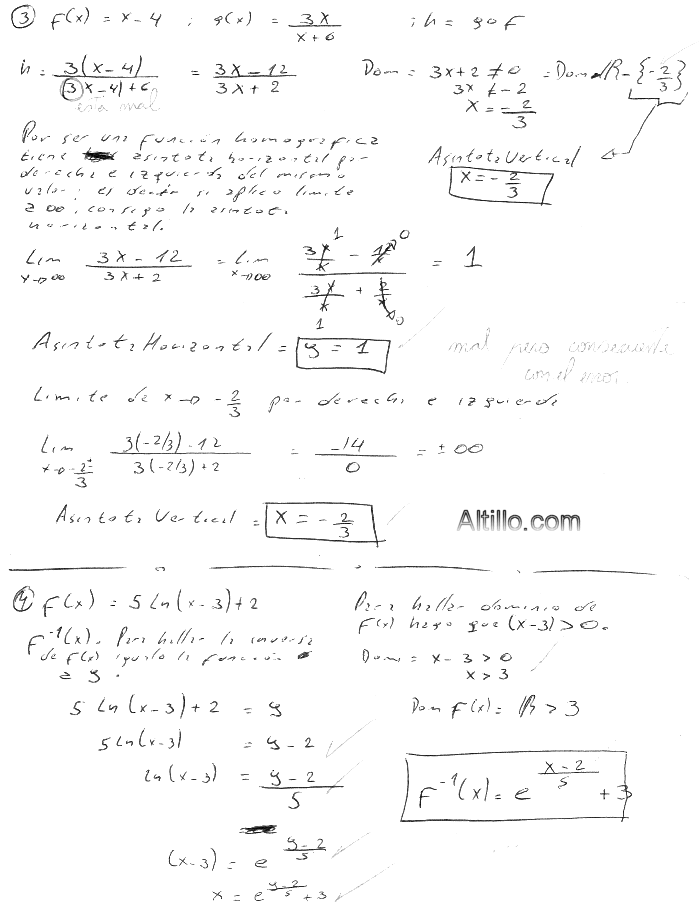 ③ F(x) = x-4 ; g(x) = 3x / x+6 ; h = g o F
h = 3(x-4) / (3x-4)+6 = 3x-12 / 3x+2 Dom = 3x+2 ≠ 0 = Dom R - {-2/3}
está mal 3x ≠ -2
x = -2/3
Por ser una función homográfica
tiene asíntota horizontal por
derecha e izquierda del mismo
valor; es decir si aplico limite
a ∞, consigo la asintota
horizontal.
Asíntota Vertical
x = -2/3
Lim x→∞ 3x-12 / 3x+2 = Lim x→∞ 3x/x - 12/x / 3x/x + 2/x = 1
Asíntota Horizontal = y = 1 mal pero consecuente
con el error.
Limite de x→ -2/3 por derecha e izquierda
Lim x→-2/3± 3(-2/3)-12 / 3(-2/3)+2 = -14/0 = ±∞
Asíntota Vertical = x = -2/3
Altillo.com
④ F(x) = 5 Ln(x-3)+2
F⁻¹(x). Para hallar la inversa
de F(x) igualo la función
a y.
5 Ln(x-3)+2 = y
5Ln(x-3) = y-2
Ln(x-3) = y-2 / 5
(x-3) = e^(y-2 / 5)
x = e^(y-2 / 5)+3
Para hallar dominio de
F(x) hago que (x-3)>0.
Dom = x-3>0
x>3
Dom F(x) = R > 3
F⁻¹(x) = e^(x-2 / 5) + 3